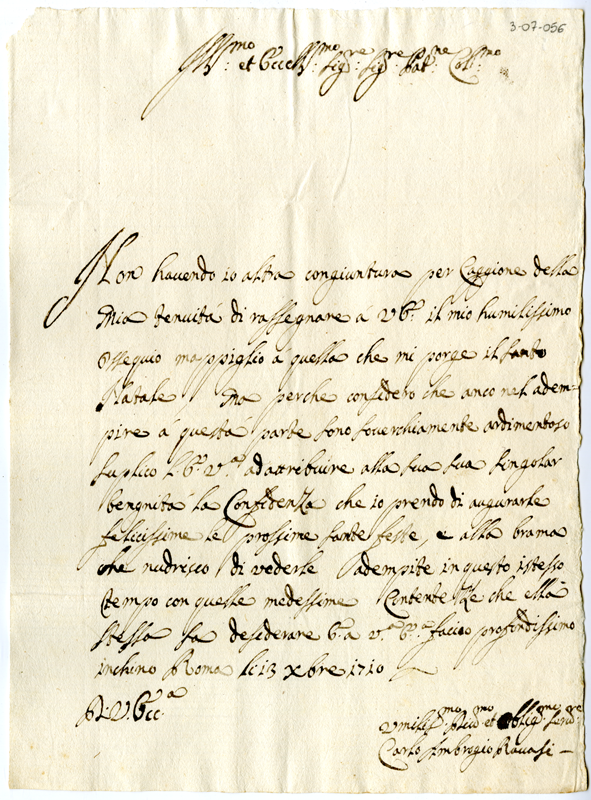 3-07-056
Ill:mo et Ecc:mo Sig:re Sig:re Pat:ne Col:mo
Non havendo io altra congiuntura per Caggione della
mia tenuitá di rassegnare á V E: il mio humilissimo
ossequio mappiglio á quella che mi porge il santo
Natale Ma perche considero che anco nel adem=
pire á questa parte sono soverchiamente ardimentoso
suplico l'E: V:a ad attribuire alla sua sua singolar
bengnita la Confidenza che io prendo di augurarle
felicissime le prossime sante feste, e alla brama
che nudrisco di vederle adempite in questo istesso
tempo con quelle medessime Contentezze che ella
stessa sa desiderare E a V:a E:a faccio profondissimo
inchino Roma li 13 Xbre 1710
Di V: Ecc:a
Umiliss:mo Dev:mo et Obblig:mo Serv:re
Carlo Ambrogio Ravasi